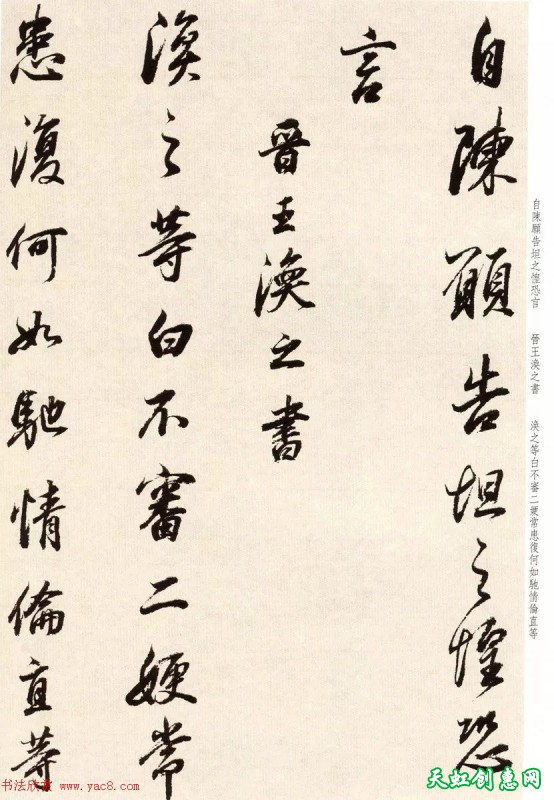 自陳願告坦之惶恐
言
晉王渙之書
渙之等白不審二嫂常
患復何如馳情倫直等
自陳願告坦之惶恐言　晉王渙之書　渙之等白不審二嫂常患復何如馳情倫直等
书法欣赏 www.yac8.com
天虹创惠网